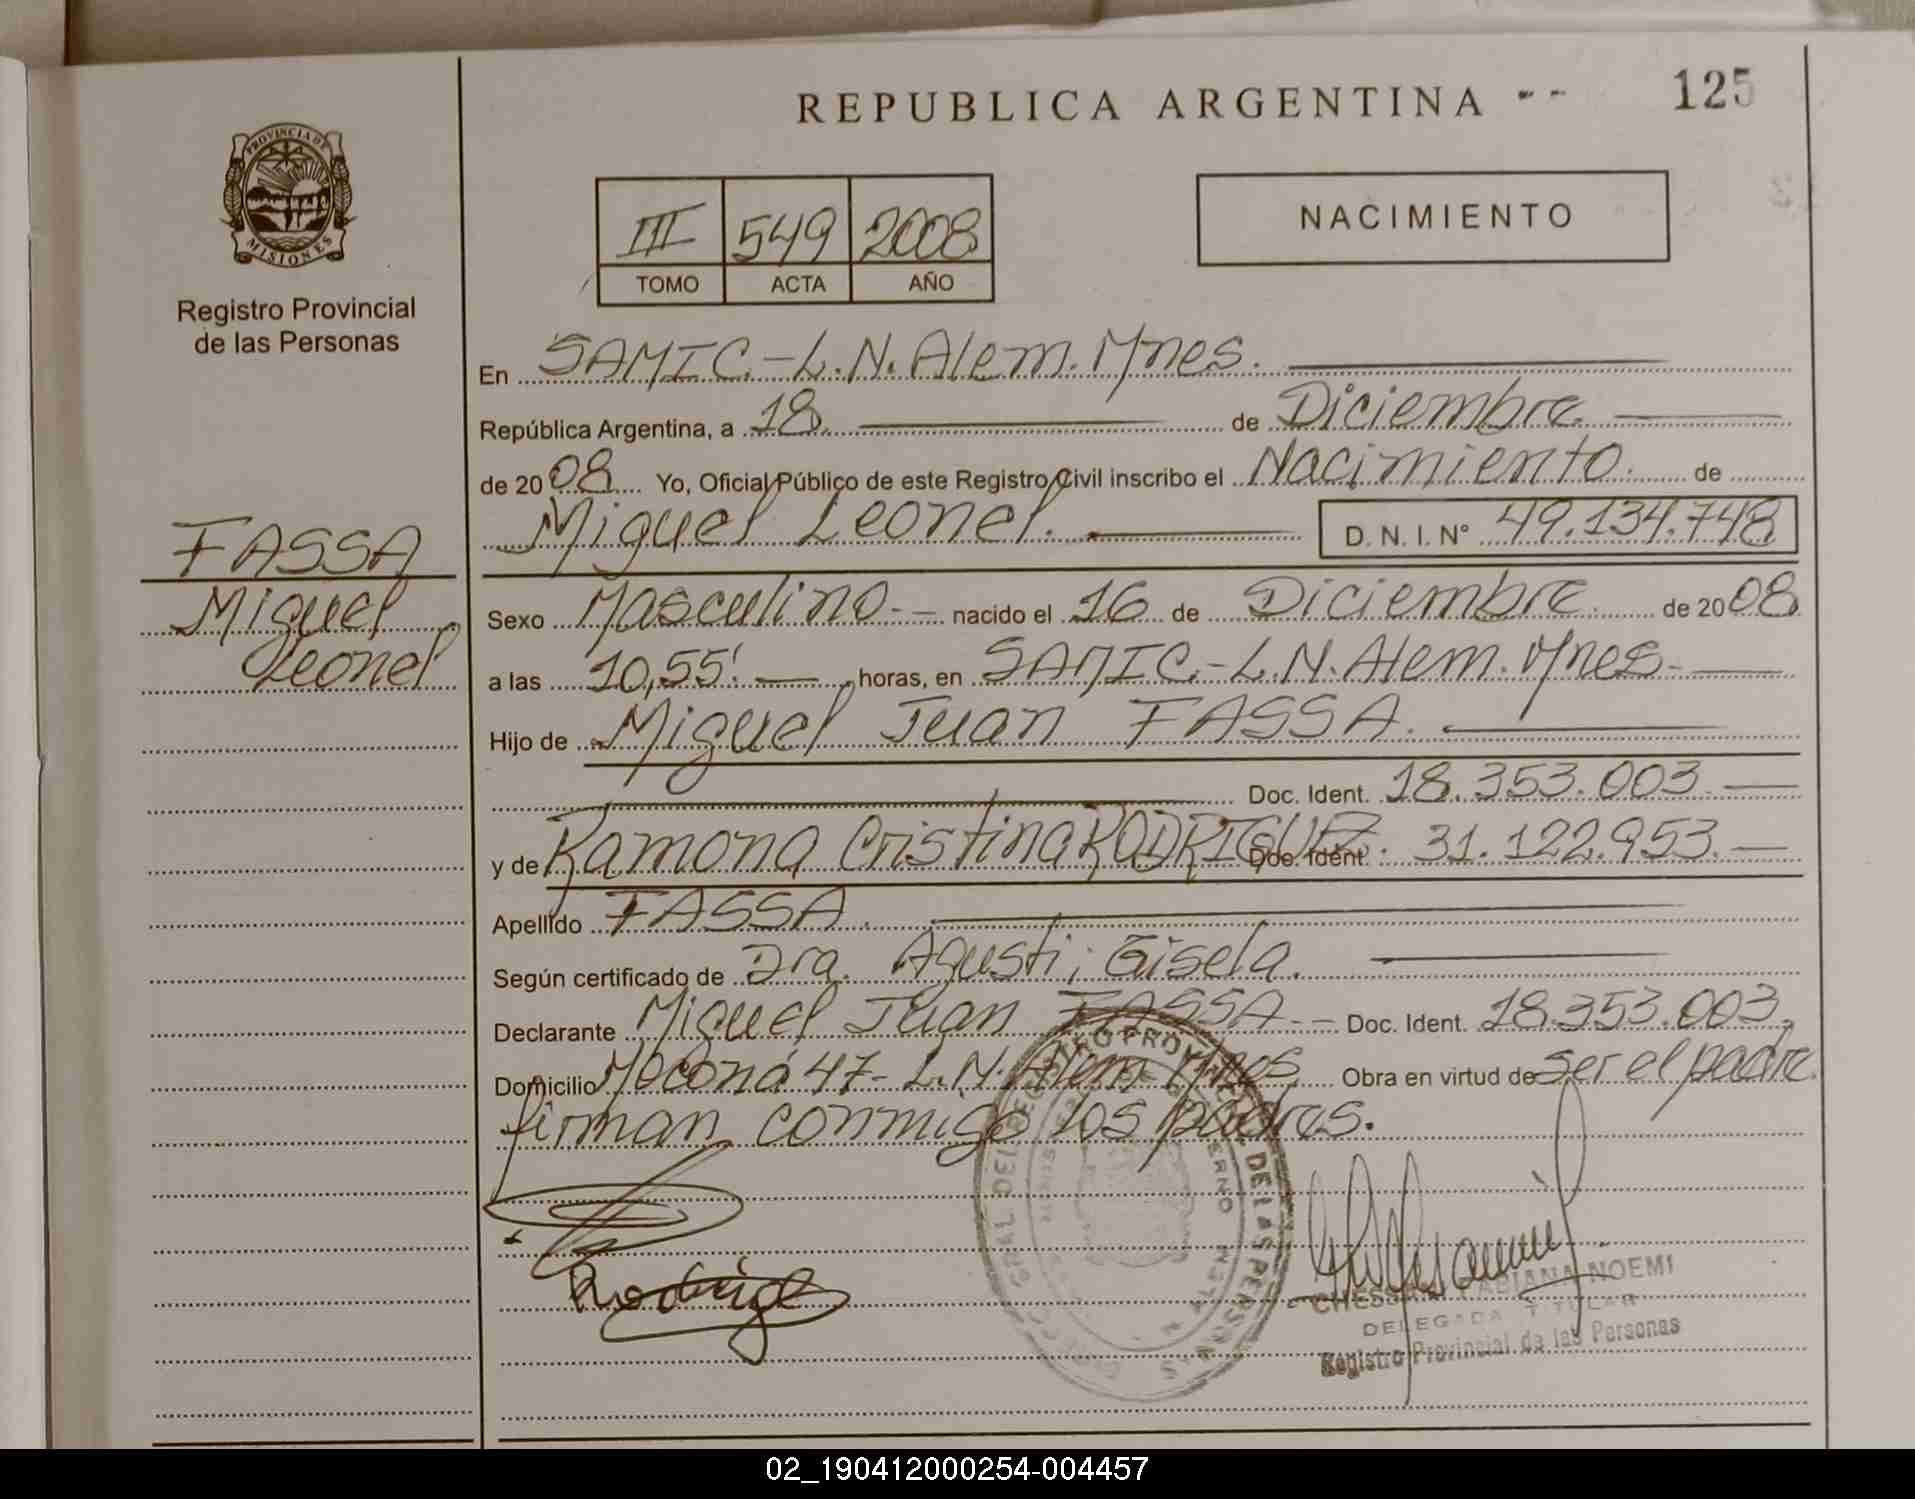 REPUBLICA ARGENTINA -- 125
PROVINCIA DE
MISIONES
Registro Provincial
de las Personas
III 549 2008
TOMO ACTA AÑO
NACIMIENTO
En SAMIC.-L.N.Alem.Mnes.
República Argentina, a 18. de Diciembre.
de 2008. Yo, Oficial Público de este Registro Civil inscribo el Nacimiento. de
Miguel Leonel. D. N. I. N° 49.134.748
FASSA
Miguel
Leonel
Sexo Masculino.- nacido el 16 de Diciembre. de 2008.
a las 10,55'. horas, en SAMIC.-L.N.Alem.Mnes.-
Hijo de Miguel Juan FASSA.
Doc. Ident. 18.353.003.
y de Ramona Cristina RODRIGUEZ. Doc. Ident. 31.122.953.
Apellido FASSA.
Según certificado de Dra. Agusti; Gisela.
Declarante Miguel Juan FASSA.- Doc. Ident. 18.353.003.
Domicilio Moconá 47- L.N.Alem Mnes. Obra en virtud de ser el padre.
firman conmigo los padres.
DE LAS PERSONAS
FABIANA NOEMI
DELEGADA TITULAR
Registro Provincial de las Personas
02_190412000254-004457